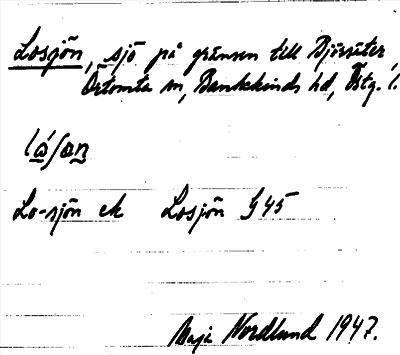 Losjön, sjö på gränsen till Björsäter
Örtomta sn, Bankekinds hd, Östg. l.
lóʃan
Lo-sjön ek Losjön G45
Maja Nordlund 1947.